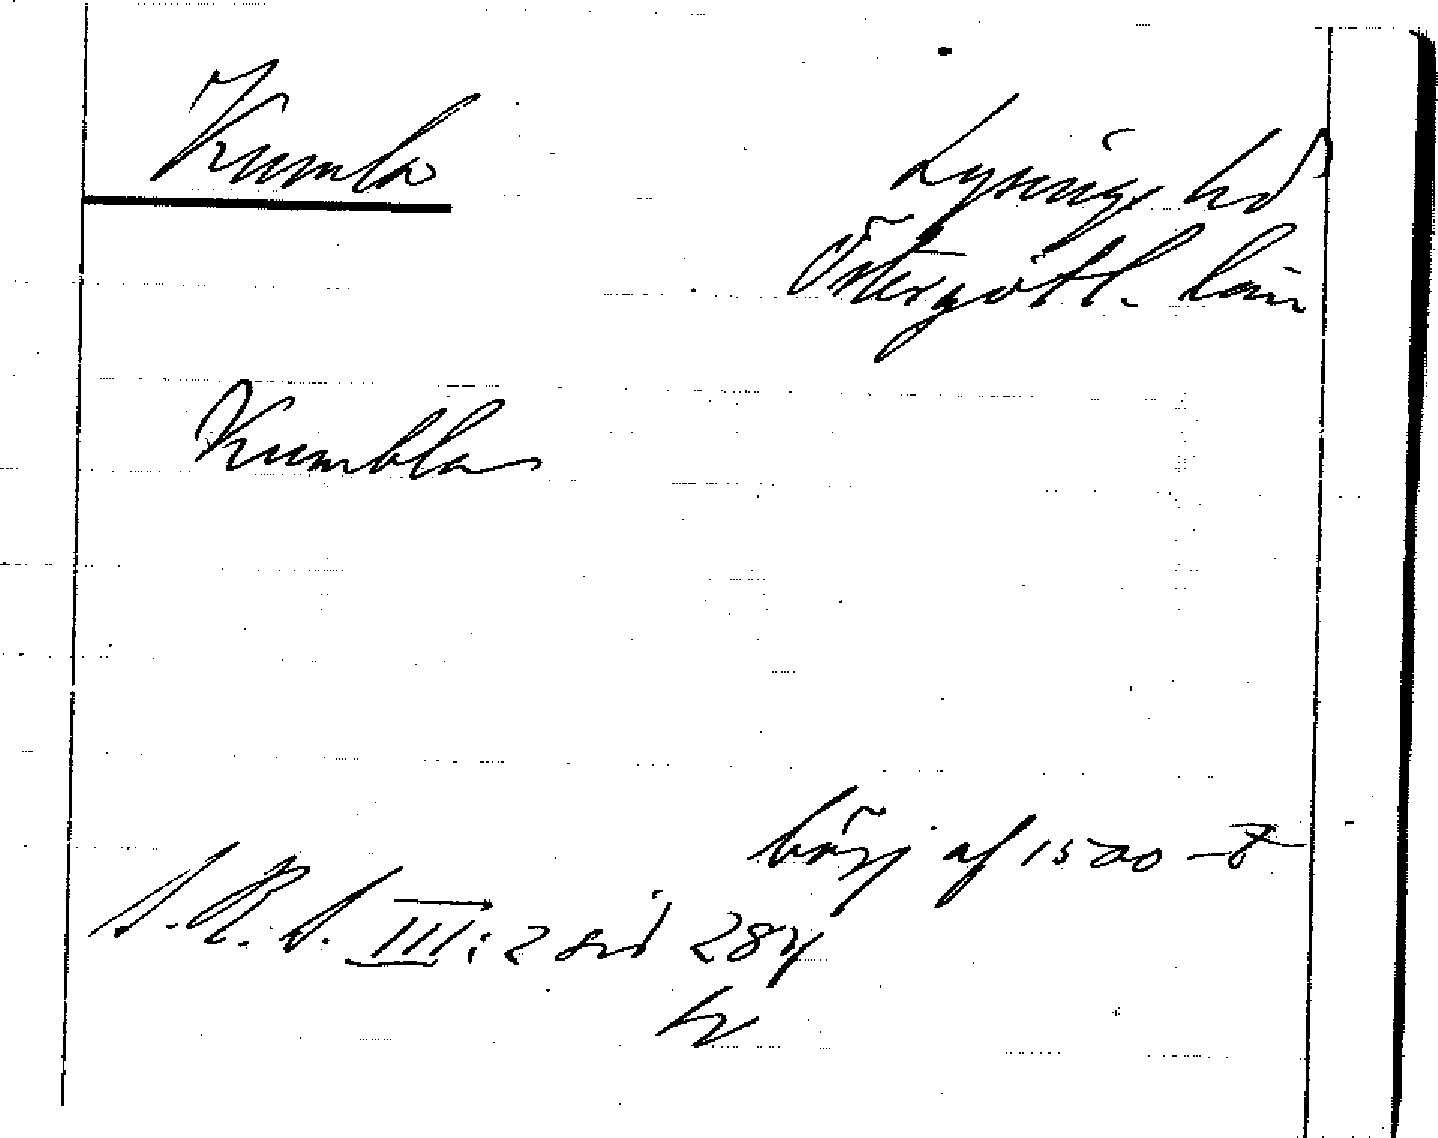 Kumla
Lysings hd
Östergötl. län
Kumbla
börj af 1500-t
S.R.S. III:2 sid 284